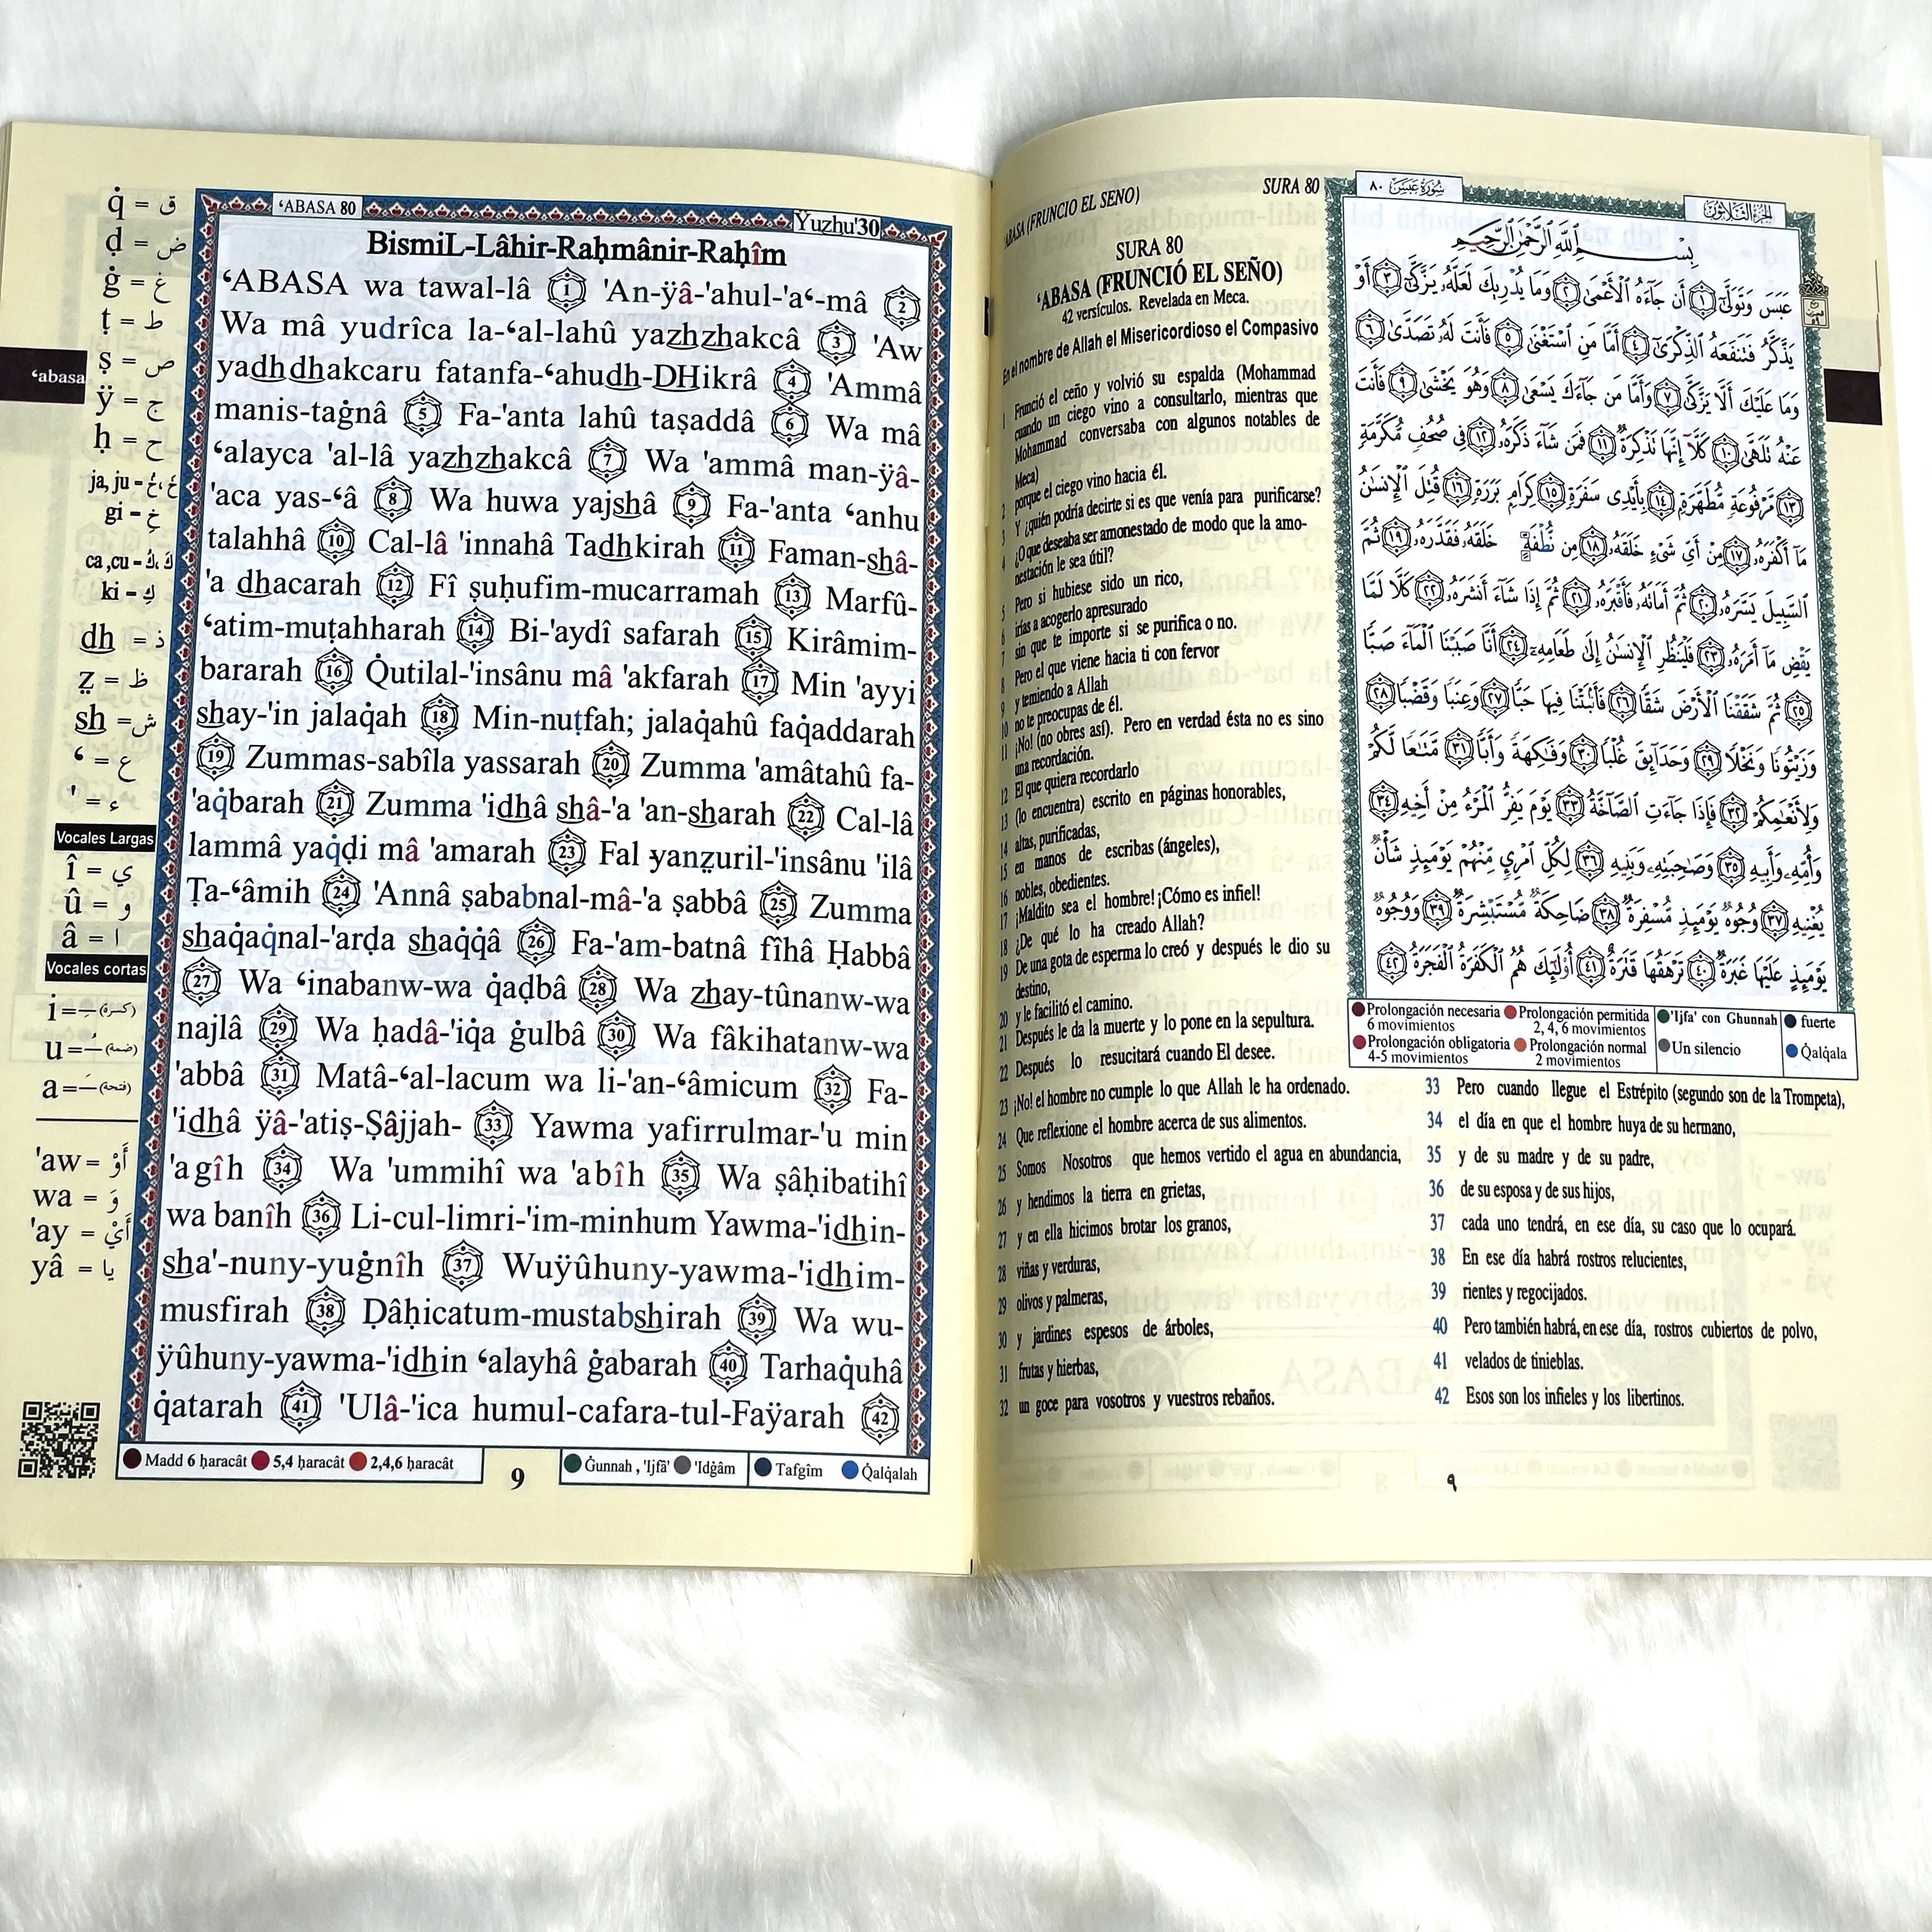 q̇ = ق
ḍ = ض
ġ = غ
ṭ = ط
ṣ = ص
ÿ = ج
ḥ = ح
ja, ju - خَ، خُ
gi - خِ
ca ,cu - كَ، كُ
ki - كِ
dh = ذ
ẓ = ظ
sh = ش
‘ = ع
' = ء
Vocales Largas
î = ي
û = و
â = ا
Vocales cortas
i = ـِ (كسرة)
u = ـُ (ضمة)
a = ـَ (فتحة)
'aw = أَوْ
wa = وَ
'ay = أَيْ
yâ = يا
‘abasa
‘ABASA 80
Ÿuzhu'30
BismiL-Lâhir-Raḥmânir-Raḥîm
‘ABASA wa tawal-lâ 1 'An-ÿâ-'ahul-'a‘-mâ 2
Wa mâ yudrîca la-‘al-lahû yazhzhakcâ 3 'Aw
yadhdhakcaru fatanfa-‘ahudh-DHikrâ 4 'Ammâ
manis-taġnâ 5 Fa-'anta lahû taṣaddâ 6 Wa mâ
‘alayca 'al-lâ yazhzhakcâ 7 Wa 'ammâ man-ÿâ-
'aca yas-‘â 8 Wa huwa yajshâ 9 Fa-'anta ‘anhu
talahhâ 10 Cal-lâ 'innahâ Tadhkirah 11 Faman-shâ-
'a dhacarah 12 Fî ṣuḥufim-mucarramah 13 Marfû-
‘atim-muṭahharah 14 Bi-'aydî safarah 15 Kirâmim-
bararah 16 Q̇utilal-'insânu mâ 'akfarah 17 Min 'ayyi
shay-'in jalaq̇ah 18 Min-nuṭfah; jalaq̇ahû faq̇addarah
19 Zummas-sabîla yassarah 20 Zumma 'amâtahû fa-
'aq̇barah 21 Zumma 'idhâ shâ-'a 'an-sharah 22 Cal-lâ
lammâ yaq̇ḍi mâ 'amarah 23 Fal yanẓuril-'insânu 'ilâ
Ṭa-‘âmih 24 'Annâ ṣababnal-mâ-'a ṣabbâ 25 Zumma
shaq̇aq̇nal-'arḍa shaq̇q̇â 26 Fa-'am-batnâ fîhâ Ḥabbâ
27 Wa ‘inabanw-wa q̇aḍbâ 28 Wa zhay-tûnanw-wa
najlâ 29 Wa ḥadâ-'iq̇a ġulbâ 30 Wa fâkihatanw-wa
'abbâ 31 Matâ-‘al-lacum wa li-'an-‘âmicum 32 Fa-
'idhâ ÿâ-'atiṣ-Ṣâjjah- 33 Yawma yafirrulmar-'u min
'agîh 34 Wa 'ummihî wa 'abîh 35 Wa ṣâḥibatihî
wa banîh 36 Li-cul-limri-'im-minhum Yawma-'idhin-
sha'-nuny-yuġnîh 37 Wuÿûhuny-yawma-'idhim-
musfirah 38 Ḍâḥicatum-mustabshirah 39 Wa wu-
ÿûhuny-yawma-'idhin ‘alayhâ ġabarah 40 Tarhaq̇uhâ
q̇atarah 41 'Ulâ-'ica humul-cafara-tul-Faÿarah 42
Madd 6 ḥaracât 5,4 ḥaracât 2,4,6 ḥaracât
9
Ġunnah , 'Ijfâ' 'Idġâm Tafgîm Q̇alq̇alah
‘ABASA (FRUNCIO EL SENO)
SURA 80
SURA 80
‘ABASA (FRUNCIÓ EL SEÑO)
42 versículos. Revelada en Meca.
En el nombre de Allah el Misericordioso el Compasivo
1 Frunció el ceño y volvió su espalda (Mohammad
cuando un ciego vino a consultarlo, mientras que
Mohammad conversaba con algunos notables de
Meca)
2 porque el ciego vino hacia él.
3 Y ¿quién podría decirte si es que venía para purificarse?
4 ¿O que deseaba ser amonestado de modo que la amo-
nestación le sea útil?
5 Pero si hubiese sido un rico,
6 irías a acogerlo apresurado
7 sin que te importe si se purifica o no.
8 Pero el que viene hacia ti con fervor
9 y temiendo a Allah
10 no te preocupas de él.
11 ¡No! (no obres así). Pero en verdad ésta no es sino
una recordación.
12 El que quiera recordarlo
13 (lo encuentra) escrito en páginas honorables,
14 altas, purificadas,
15 en manos de escribas (ángeles),
16 nobles, obedientes.
17 ¡Maldito sea el hombre! ¡Cómo es infiel!
18 ¿De qué lo ha creado Allah?
19 De una gota de esperma lo creó y después le dio su
destino,
20 y le facilitó el camino.
21 Después le da la muerte y lo pone en la sepultura.
22 Después lo resucitará cuando El desee.
23 ¡No! el hombre no cumple lo que Allah le ha ordenado.
24 Que reflexione el hombre acerca de sus alimentos.
25 Somos Nosotros que hemos vertido el agua en abundancia,
26 y hendimos la tierra en grietas,
27 y en ella hicimos brotar los granos,
28 viñas y verduras,
29 olivos y palmeras,
30 y jardines espesos de árboles,
31 frutas y hierbas,
32 un goce para vosotros y vuestros rebaños.
سُورَةُ عَبَسَ ٨٠
الجزء الثلاثون
بِسْمِ اللَّهِ الرَّحْمَٰنِ الرَّحِيمِ
عَبَسَ وَتَوَلَّىٰٓ ١ أَن جَآءَهُ ٱلْأَعْمَىٰ ٢ وَمَا يُدْرِيكَ لَعَلَّهُۥ يَزَّكَّىٰٓ ٣ أَوْ
يَذَّكَّرُ فَتَنفَعَهُ ٱلذِّكْرَىٰٓ ٤ أَمَّا مَنِ ٱسْتَغْنَىٰ ٥ فَأَنتَ لَهُۥ تَصَدَّىٰ ٦
وَمَا عَلَيْكَ أَلَّا يَزَّكَّىٰ ٧ وَأَمَّا مَن جَآءَكَ يَسْعَىٰ ٨ وَهُوَ يَخْشَىٰ ٩ فَأَنتَ
عَنْهُ تَلَهَّىٰ ١٠ كَلَّآ إِنَّهَا تَذْكِرَةٌ ١١ فَمَن شَآءَ ذَكَرَهُۥ ١٢ فِى صُحُفٍ مُّكَرَّمَةٍ
١٣ مَّرْفُوعَةٍ مُّطَهَّرَةٍۭ ١٤ بِأَيْدِى سَفَرَةٍ ١٥ كِرَامٍۭ بَرَرَةٍ ١٦ قُتِلَ ٱلْإِنسَٰنُ
مَآ أَكْفَرَهُۥ ١٧ مِنْ أَىِّ شَىْءٍ خَلَقَهُۥ ١٨ مِن نُّطْفَةٍ خَلَقَهُۥ فَقَدَّرَهُۥ ١٩ ثُمَّ
ٱلسَّبِيلَ يَسَّرَهُۥ ٢٠ ثُمَّ أَمَاتَهُۥ فَأَقْبَرَهُۥ ٢١ ثُمَّ إِذَا شَآءَ أَنشَرَهُۥ ٢٢ كَلَّا لَمَّا
يَقْضِ مَآ أَمَرَهُۥ ٢٣ فَلْيَنظُرِ ٱلْإِنسَٰنُ إِلَىٰ طَعَامِهِۦٓ ٢٤ أَنَّا صَبَبْنَا ٱلْمَآءَ صَبًّا
٢٥ ثُمَّ شَقَقْنَا ٱلْأَرْضَ شَقًّا ٢٦ فَأَنۢبَتْنَا فِيهَا حَبًّا ٢٧ وَعِنَبًا وَقَضْبًا ٢٨
وَزَيْتُونًا وَنَخْلًا ٢٩ وَحَدَآئِقَ غُلْبًا ٣٠ وَفَٰكِهَةً وَأَبًّا ٣١ مَّتَٰعًا لَّكُمْ
وَلِأَنْعَٰمِكُمْ ٣٢ فَإِذَا جَآءَتِ ٱلصَّآخَّةُ ٣٣ يَوْمَ يَفِرُّ ٱلْمَرْءُ مِنْ أَخِيهِ ٣٤
وَأُمِّهِۦ وَأَبِيهِ ٣٥ وَصَٰحِبَتِهِۦ وَبَنِيهِ ٣٦ لِكُلِّ ٱمْرِئٍ مِّنْهُمْ يَوْمَئِذٍ شَأْنٌ
يُغْنِيهِ ٣٧ وُجُوهٌ يَوْمَئِذٍ مُّسْفِرَةٌ ٣٨ ضَاحِكَةٌ مُّسْتَبْشِرَةٌ ٣٩ وَوُجُوهٌ
يَوْمَئِذٍ عَلَيْهَا غَبَرَةٌ ٤٠ تَرْهَقُهَا قَتَرَةٌ ٤١ أُو۟لَٰٓئِكَ هُمُ ٱلْكَفَرَةُ ٱلْفَجَرَةُ ٤٢
Prolongación necesaria 6 movimientos
Prolongación permitida 2, 4, 6 movimientos
'Ijfa' con Ghunnah
fuerte
Prolongación obligatoria 4-5 movimientos
Prolongación normal 2 movimientos
Un silencio
Q̇alq̇ala
33 Pero cuando llegue el Estrépito (segundo son de la Trompeta),
34 el día en que el hombre huya de su hermano,
35 y de su madre y de su padre,
36 de su esposa y de sus hijos,
37 cada uno tendrá, en ese día, su caso que lo ocupará.
38 En ese día habrá rostros relucientes,
39 rientes y regocijados.
40 Pero también habrá, en ese día, rostros cubiertos de polvo,
41 velados de tinieblas.
42 Esos son los infieles y los libertinos.
٩